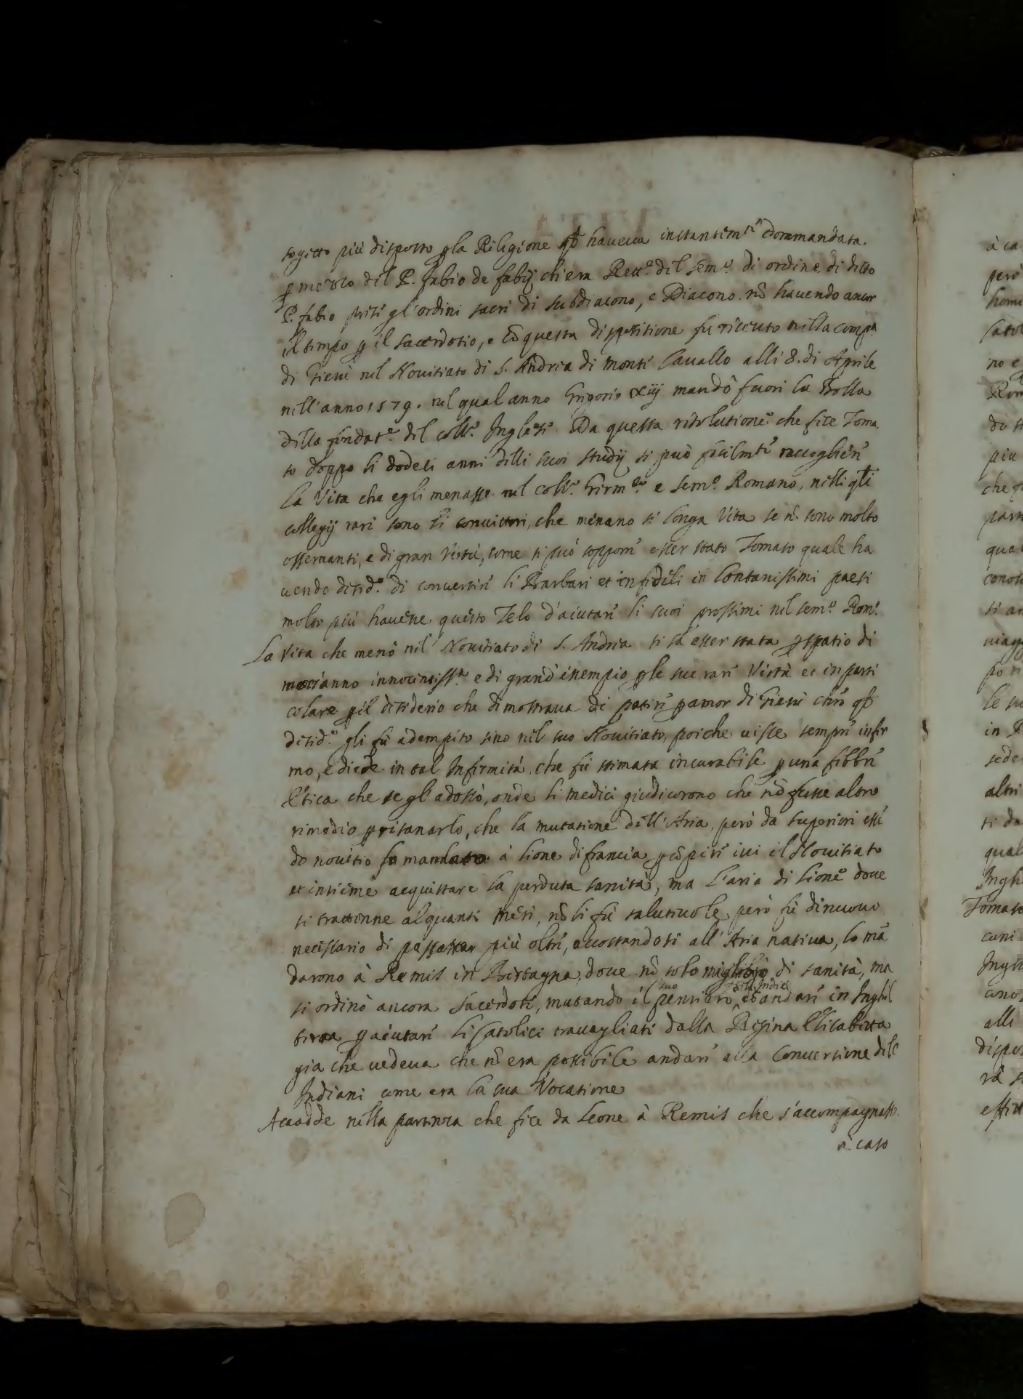 sogetto più disposto p la Religione qł haueua instantemte dommandata.
p mezzo del P. fabio de fabij ch'era Rett.e del Sem.o di ordine di ditto
P. fabio prese gl'ordini sacri di subdiacono, e Diacono nõ hauendo ancor
il tempo p il sacerdotio, e cõ questa dispositione fu riceuto nella comp.a
di Giesù nel Nouitiato di S. Andrea di monte Cauallo alli 8. di Aprile
nell'anno 1579. nel qual anno Gregorio xiij mandò fuori la Bolla
della fondat.e del coll.o Inglese. Da questa resolutione che fece Toma
so doppo li dodeci anni delli suoi studij si può facilmte raccogliere
la Vita che egli menasse nel coll.o Germ.co e Sem.o Romano, nelli qłi
collegij rari sono li conuittori, che menano sì longa Vita se nõ sono molto
osseruanti, e di gran Virtù, come si può sopporre esser stato Tomaso quale ha
uendo desid.o di conuertire li Barbari et infideli in lontanissimi paesi
molto più hauene questo Zelo d'aiutare li suoi prossimi nel sem.o Rom.o
La Vita che menò nel Nouitiato di S. Andrea si sà esser stata p spatio di
anno innocentiss.a e di grand'esempio p le sue rare Virtù et in parti
colare p il desiderio che dimostraua di patire p amor di Giesù chro qł
desid.o gli fù adempito sino nel suo Nouitiato, poiche uisse sempre infer
mo, e diede in tal Infermità, che fù stimata incurabile p una febbre
Ettica che se gl'adossò, onde li medici giudicorono che nõ fusse altro
rimedio p risanarlo, che la mutatione dell'Aria, però da superiori essē
do nouitio fo mandato à Lione di francia p cõpire iui il Nouitiato
et insieme acquistare la perduta sanità, ma l'aria di Lione doue
si trattenne alquanti mesi, nõ li fù saluteuole, però fù di nuouo
necessario di passar più oltre, accostandosi all'Aria natiua, lo mā
darono à Remis in Bertagna, doue nõ solo migliorò di sanità, ma
si ordinò ancora Sacerdote, mutando il suo pensiero dell'Indie et andare in Inghil
terra p aiutare li Catolici trauagliati dalla Regina Elisabetta
gia che uedeua che nõ era possibile andare alla Conuersione dell'
Indiani come era la sua Vocatione
Accadde nella partenza che fece da Leone à Remis che s'accompagnasse
à caso